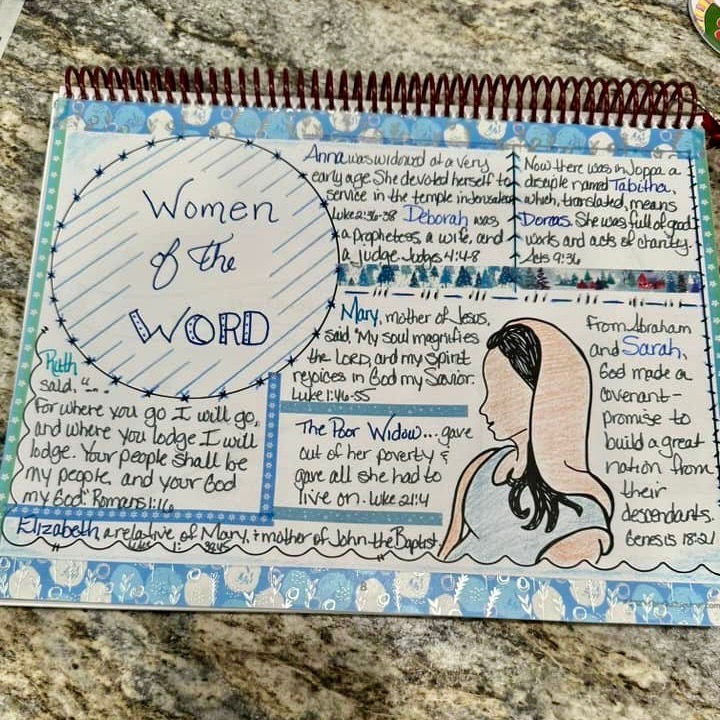 Women
of the
WORD
Anna was widowed at a very
early age. She devoted herself to
service in the temple in Jerusalem
Luke 2:36-38 Deborah was
a prophetess, a wife, and
a judge. Judges 4:4-8
Now there was in Joppa a
disciple named Tabitha,
which, translated, means
Dorcas. She was full of good
works and acts of charity.
Acts 9:36
Mary, mother of Jesus,
said, "My soul magnifies
the LORD, and my spirit
rejoices in God my Savior.
Luke 1:46-55
From Abraham
and Sarah,
God made a
covenant-
promise to
build a great
nation from
their
descendants.
Genesis 18:
Ruth
said, "...
For where you go I will go,
and where you lodge I will
lodge. Your people shall be
my people, and your God
my God." Romans 1:16
The Poor Widow... gave
out of her poverty &
gave all she had to
live on. Luke 21:4
Elizabeth a relative of Mary, + mother of John the Baptist.
Luke 1: